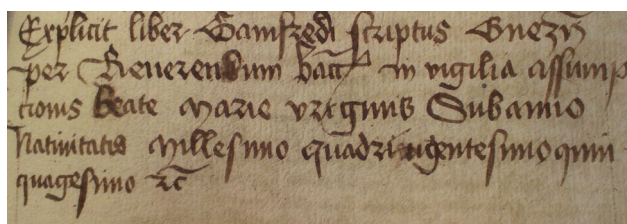 Explicit liber Gamfredi scriptus Gnezn
per Reuerendum bacc in vigilia assump
cionis beate marie virginis Sub anno
Natiuitatis Millesimo quadringentesimo quin
quagesimo rc